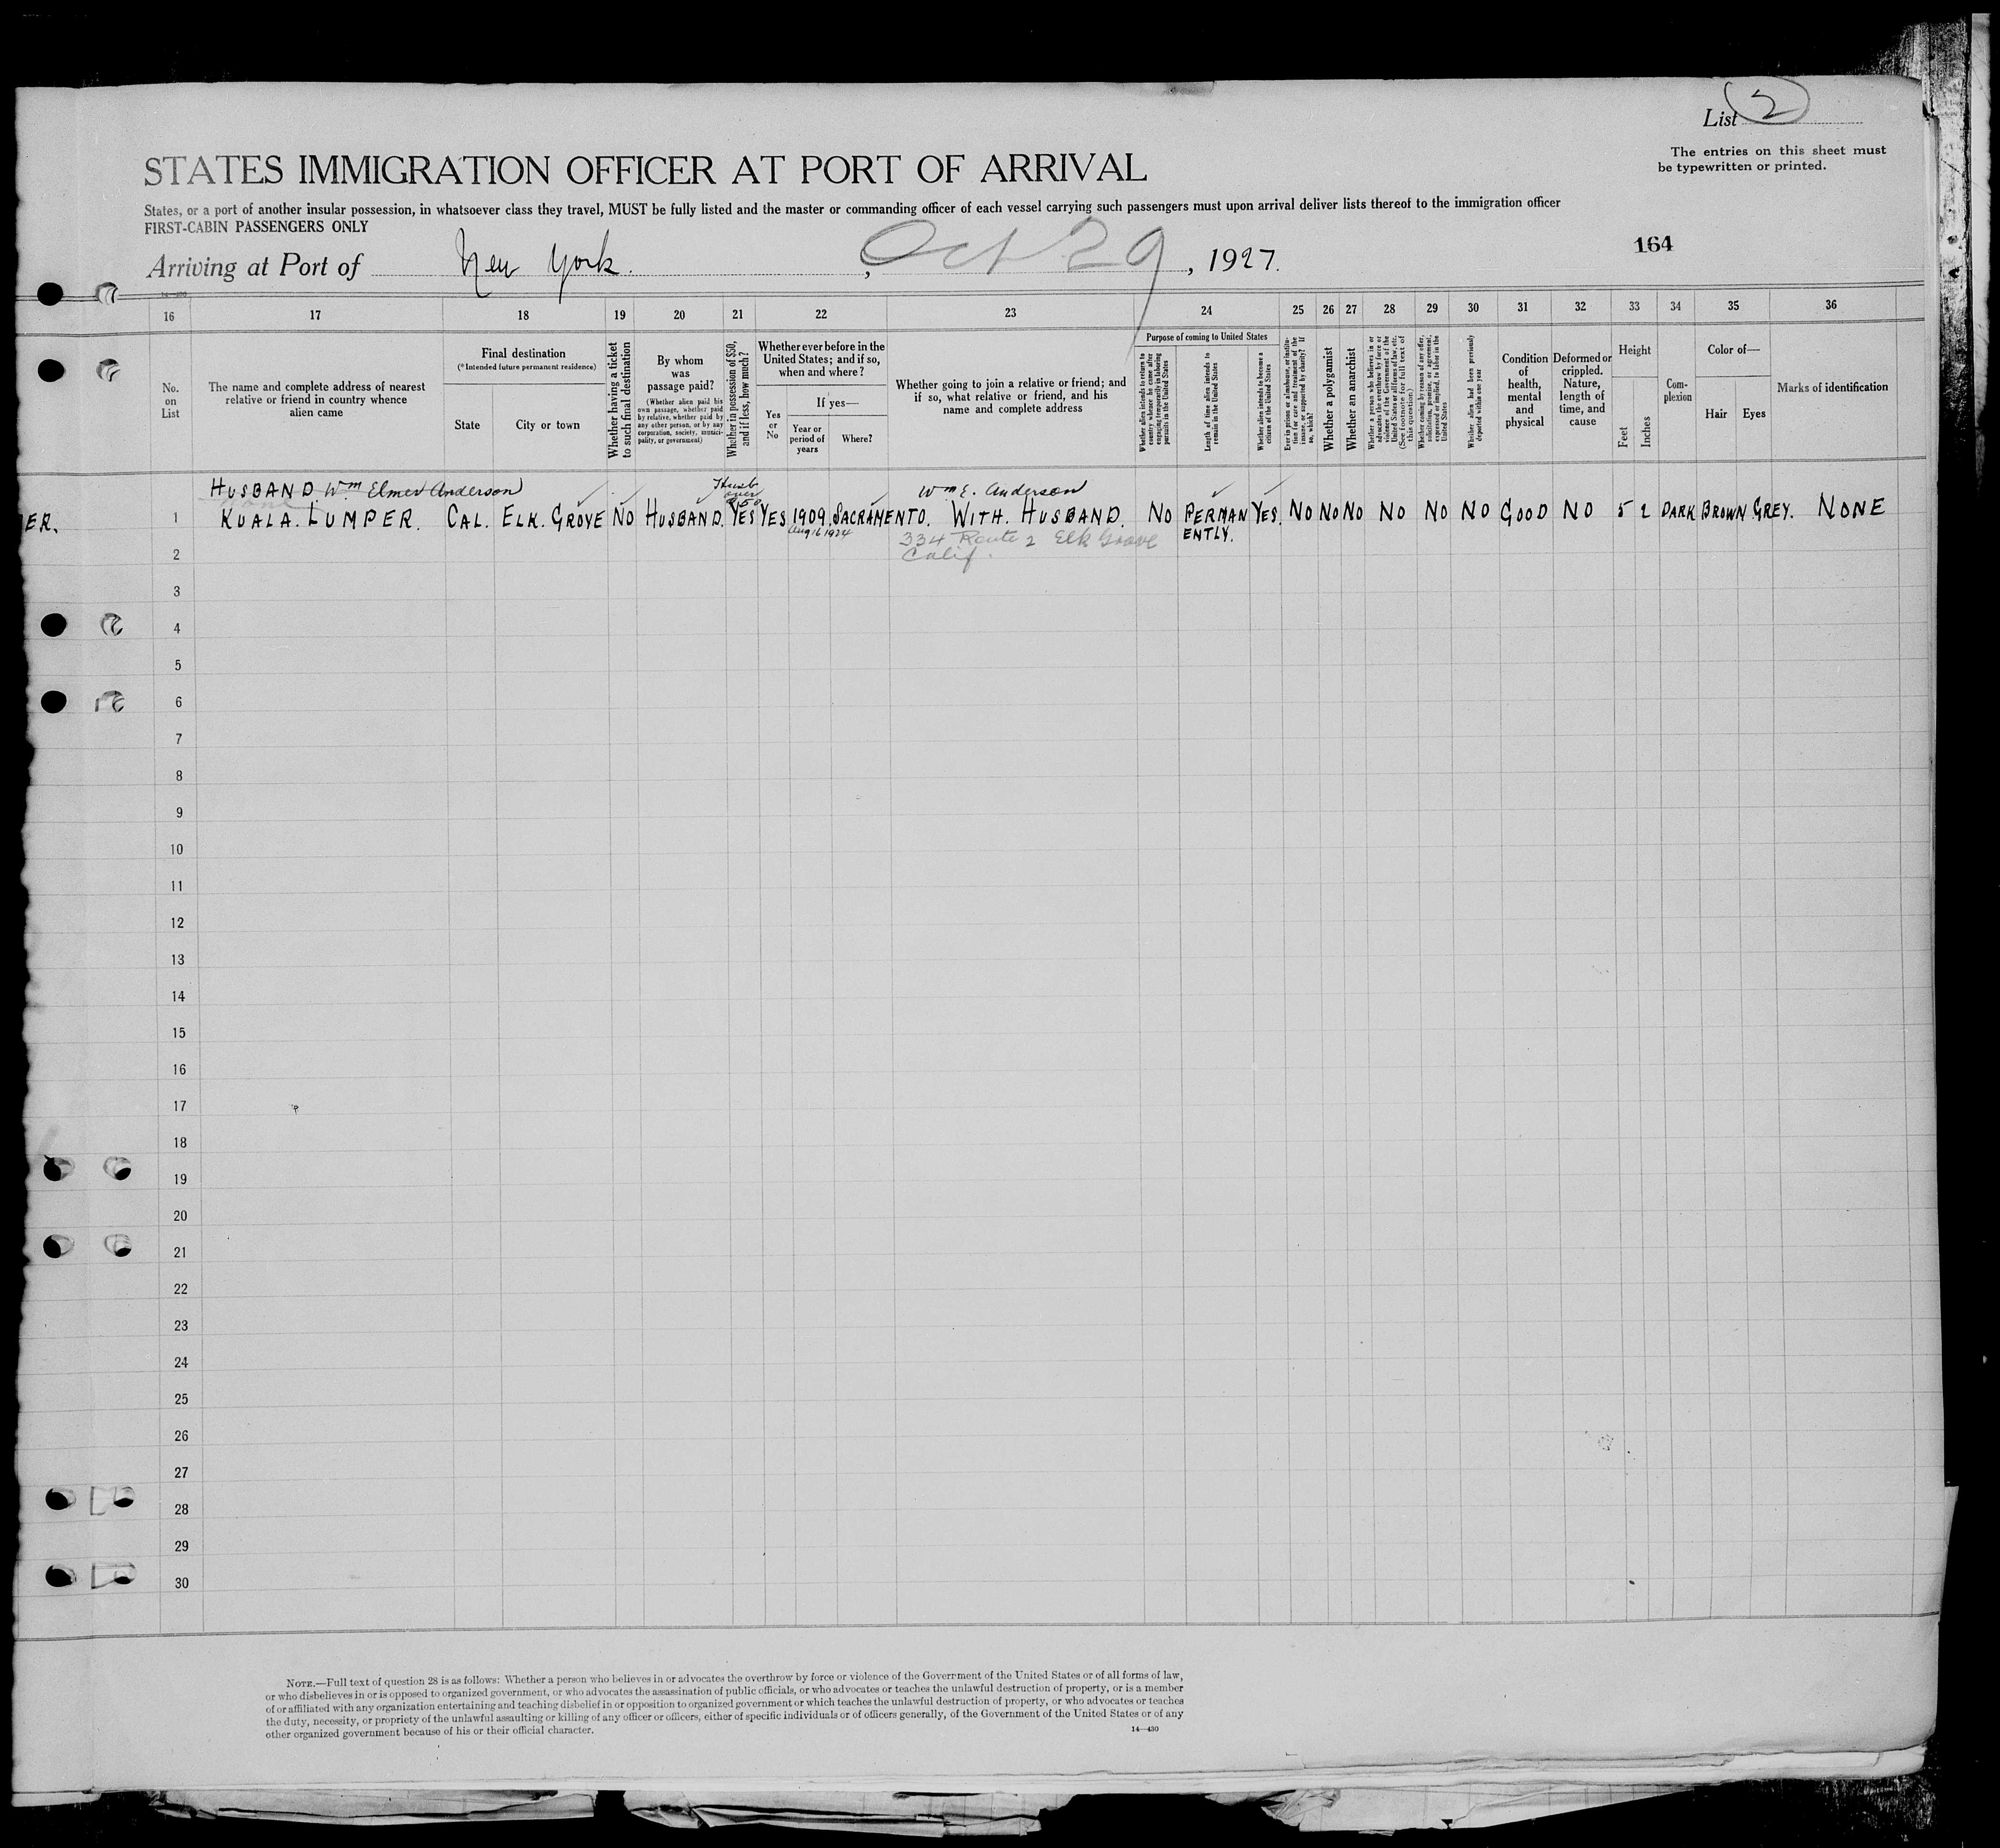 List 2
The entries on this sheet must
be typewritten or printed.
STATES IMMIGRATION OFFICER AT PORT OF ARRIVAL
States, or a port of another insular possession, in whatsoever class they travel, MUST be fully listed and the master or commanding officer of each vessel carrying such passengers must upon arrival deliver lists thereof to the immigration officer
FIRST-CABIN PASSENGERS ONLY
164
Arriving at Port of New York. , Oct 29 , 1927.
16 17 18 19 20 21 22 23 24 25 26 27 28 29 30 31 32 33 34 35 36
No.
on
List
The name and complete address of nearest
relative or friend in country whence
alien came
Final destination
(*Intended future permanent residence)
State
City or town
Whether having a ticket
to such final destination
By whom
was
passage paid?
(Whether alien paid his
own passage, whether paid
by relative, whether paid by
any other person, or by any
corporation, society, munici-
pality, or government)
Whether in possession of $50,
and if less, how much?
Whether ever before in the
United States; and if so,
when and where?
Yes
or
No
If yes—
Year or
period of
years
Where?
Whether going to join a relative or friend; and
if so, what relative or friend, and his
name and complete address
Purpose of coming to United States
Whether alien intends to return to
country whence he came after
engaging temporarily in laboring
pursuits in the United States
Length of time alien intends to
remain in the United States
Whether alien intends to become a
citizen of the United States
Ever in prison or almshouse, or institu-
tion for care and treatment of the
insane, or supported by charity? If
so, which?
Whether a polygamist
Whether an anarchist
Whether a person who believes in or
advocates the overthrow by force or
violence of the Government of the
United States or all forms of law, etc.
(See footnote for full text of
this question)
Whether coming by reason of any offer,
solicitation, promise, or agreement,
expressed or implied, to labor in the
United States
Whether alien had been previously
deported within one year
Condition
of
health,
mental
and
physical
Deformed or
crippled.
Nature,
length of
time, and
cause
Height
Feet
Inches
Com-
plexion
Color of—
Hair
Eyes
Marks of identification
HUSBAND. Wm Elmer Anderson Husb over Wm E. Anderson
ER. 1 KUALA. LUMPER. CAL. ELK. GROVE NO HUSBAND. YES YES 1909. SACRAMENTO. WITH. HUSBAND. NO PERMAN YES. NO NO NO NO NO NO GOOD NO 5 2 DARK BROWN GREY. NONE
Aug 16 1924 334 Route 2 Elk Grove ENTLY.
2 Calif.
3
4
5
6
7
8
9
10
11
12
13
14
15
16
17
18
19
20
21
22
23
24
25
26
27
28
29
30
NOTE.—Full text of question 28 is as follows: Whether a person who believes in or advocates the overthrow by force or violence of the Government of the United States or of all forms of law,
or who disbelieves in or is opposed to organized government, or who advocates the assassination of public officials, or who advocates or teaches the unlawful destruction of property, or is a member
of or affiliated with any organization entertaining and teaching disbelief in or opposition to organized government or which teaches the unlawful destruction of property, or who advocates or teaches
the duty, necessity, or propriety of the unlawful assaulting or killing of any officer or officers, either of specific individuals or of officers generally, of the Government of the United States or of any
other organized government because of his or their official character.
14—430